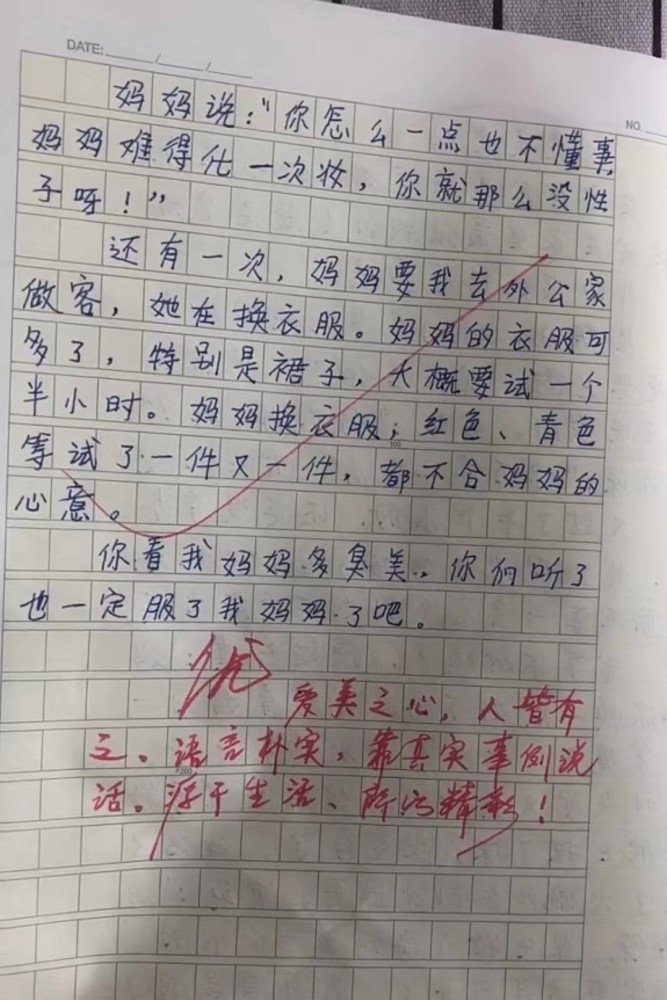 DATE: / /
NO.
妈妈说:“你怎么一点也不懂事,
妈妈难得化一次妆,你就那么没性
子呀!”
还有一次,妈妈要我去外公家
做客,她在换衣服。妈妈的衣服可
多了,特别是裙子,大概要试一个
半小时。妈妈换衣服;红色、青色
等试了一件又一件,都不合妈妈的
心意。
你看我妈妈多臭美,你们听了
也一定服了我妈妈了吧。
优
爱美之心,人皆有
之。语言朴实,靠真实事例说
话。源于生活、精彩!